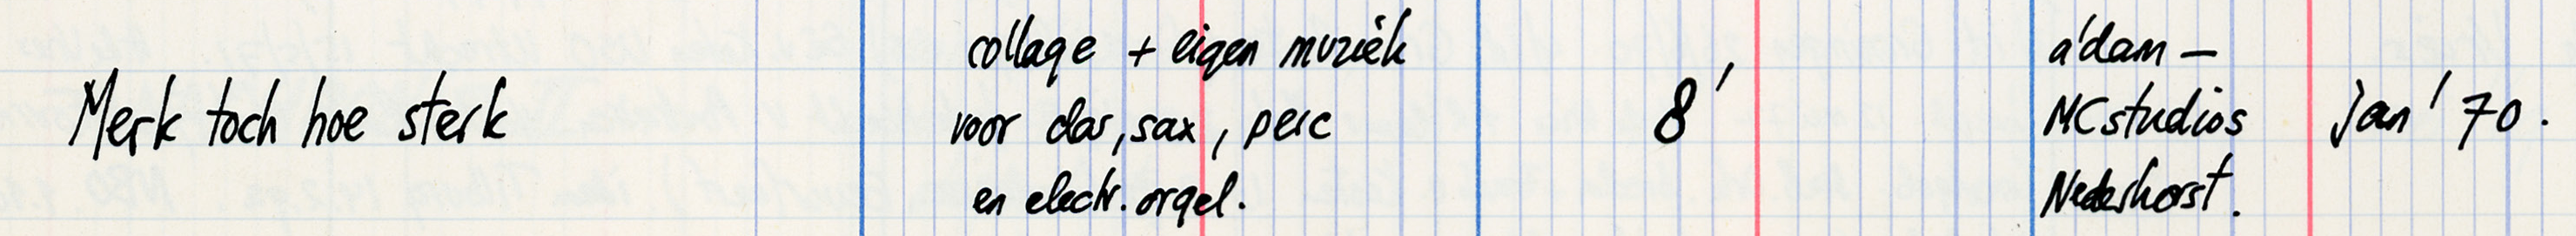 Merk toch hoe sterk
collage + eigen muziek
voor clar, sax, perc
en electr. orgel.
8'
a'dam –
MCstudios
Nederhorst.
jan '70.